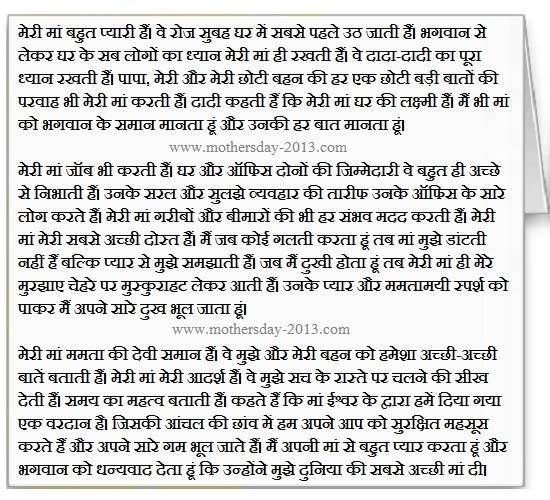 मेरी मां बहुत प्यारी हैं। वे रोज सुबह घर में सबसे पहले उठ जाती हैं। भगवान से
लेकर घर के सब लोगों का ध्यान मेरी मां ही रखती हैं। वे दादा-दादी का पूरा
ध्यान रखती हैं। पापा, मेरी और मेरी छोटी बहन की हर एक छोटी बड़ी बातों की
परवाह भी मेरी मां करती हैं। दादी कहती हैं कि मेरी मां घर की लक्ष्मी हैं। मैं भी मां
को भगवान के समान मानता हूं और उनकी हर बात मानता हूं।
www.mothersday-2013.com
मेरी मां जॉब भी करती हैं। घर और ऑफिस दोनों की जिम्मेदारी वे बहुत ही अच्छे
से निभाती हैं। उनके सरल और सुलझे व्यवहार की तारीफ उनके ऑफिस के सारे
लोग करते हैं। मेरी मां गरीबों और बीमारों की भी हर संभव मदद करती हैं। मेरी
मां मेरी सबसे अच्छी दोस्त हैं। मैं जब कोई गलती करता हूं तब मां मुझे डांटती
नहीं हैं बल्कि प्यार से मुझे समझाती हैं। जब मैं दुखी होता हूं तब मेरी मां ही मेरे
मुरझाए चेहरे पर मुस्कुराहट लेकर आती हैं। उनके प्यार और ममतामयी स्पर्श को
पाकर मैं अपने सारे दुख भूल जाता हूं।
www.mothersday-2013.com
मेरी मां ममता की देवी समान हैं। वे मुझे और मेरी बहन को हमेशा अच्छी-अच्छी
बातें बताती हैं। मेरी मां मेरी आदर्श हैं। वे मुझे सच के रास्ते पर चलने की सीख
देती हैं। समय का महत्व बताती हैं। कहते हैं कि मां ईश्वर के द्वारा हमें दिया गया
एक वरदान है। जिसकी आंचल की छांव में हम अपने आप को सुरक्षित महसूस
करते हैं और अपने सारे गम भूल जाते हैं। मैं अपनी मां से बहुत प्यार करता हूं और
भगवान को धन्यवाद देता हूं कि उन्होंने मुझे दुनिया की सबसे अच्छी मां दी।